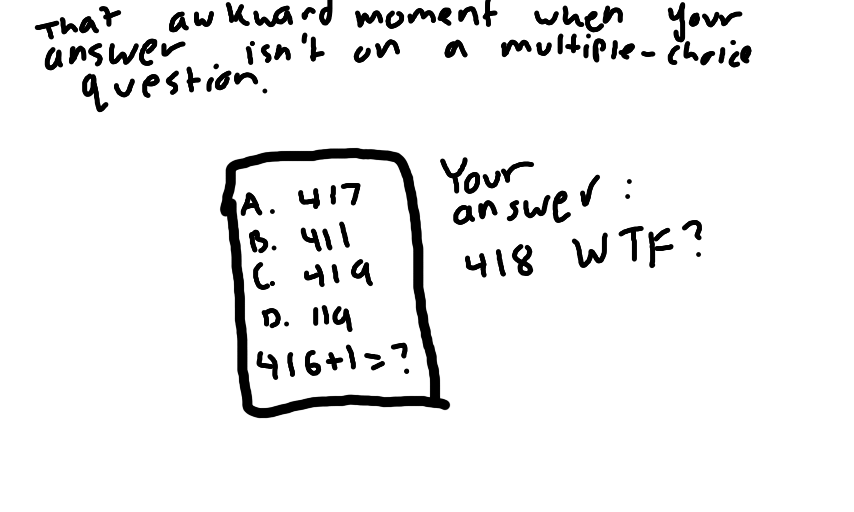 That awkward moment when your
answer isn't on a multiple-choice
question.
A. 417
B. 411
C. 419
D. 119
416+1=?
Your
answer:
418 WTF?